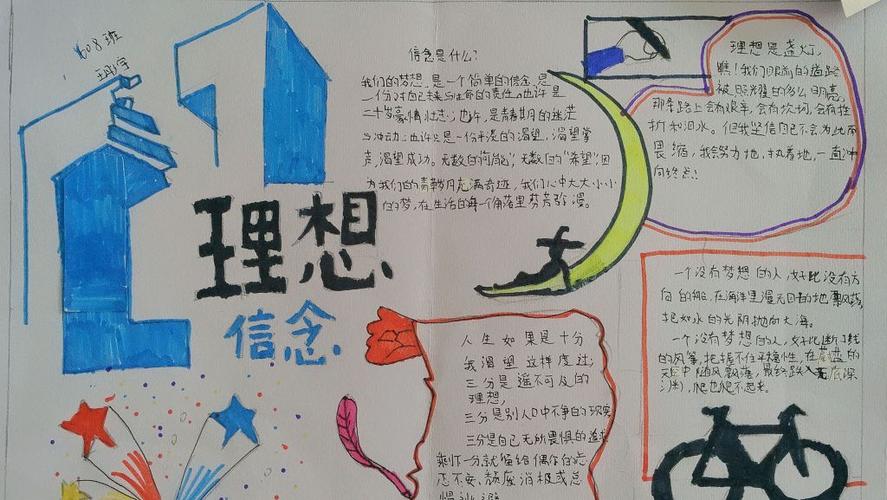 608班
理想
信念
信念是什么?
我们的梦想,是一个简单的信念,是
一份对自己未来与生命的责任。也许是
二十岁豪情壮志;也许,是青春期的迷茫
与冲动;也许只是一份平淡的渴望,渴望掌
声,渴望成功。无数的“可能”,无数的“希望”,因
为我们的青春岁月充满奇迹,我们心中大大小小
的梦,在生活的每一个角落里芬芳弥漫。
理想是盏灯,
瞧!我们眼前的道路
被照耀的多么明亮,
那条路上会有艰辛,会有坎坷,会有挫
折和泪水。但我坚信自己不会为此而
畏缩,我会努力地,执着地,一直冲
向终点!
一个没有梦想的人,好比没有方
向的船,在海洋里漫无目的地飘荡,
把如水的光阴抛向大海。
一个没有梦想的人,好比断了线
的风筝,把握不住平衡性,在
天空中随风飘落,最终跌入无底深
渊,爬也爬不起来。
人生如果是十分
我渴望这样度过:
三分是遥不可及的
理想,
三分是别人口中不争的现实
三分是自己无所畏惧的追求
剩下一分就留给偶尔的忐
忑不安、颓废消极或怠
慢